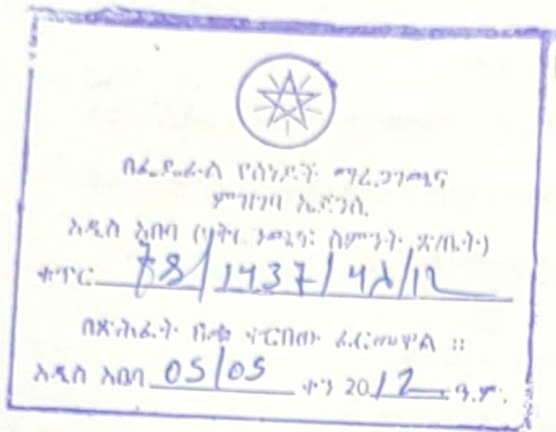 በፌዴራል የሰነዶች ማረጋገጫና
ምዝገባ ኤጀንሲ
አዲስ አበባ ስምንት ጽ/ቤት)
ቁጥር 78/1437/ /12
በጽ/ቤት ቀርበው ፈርመዋል ፡፡
አዲስ አበባ 05/05 ቀን 2012 ዓ.ም.